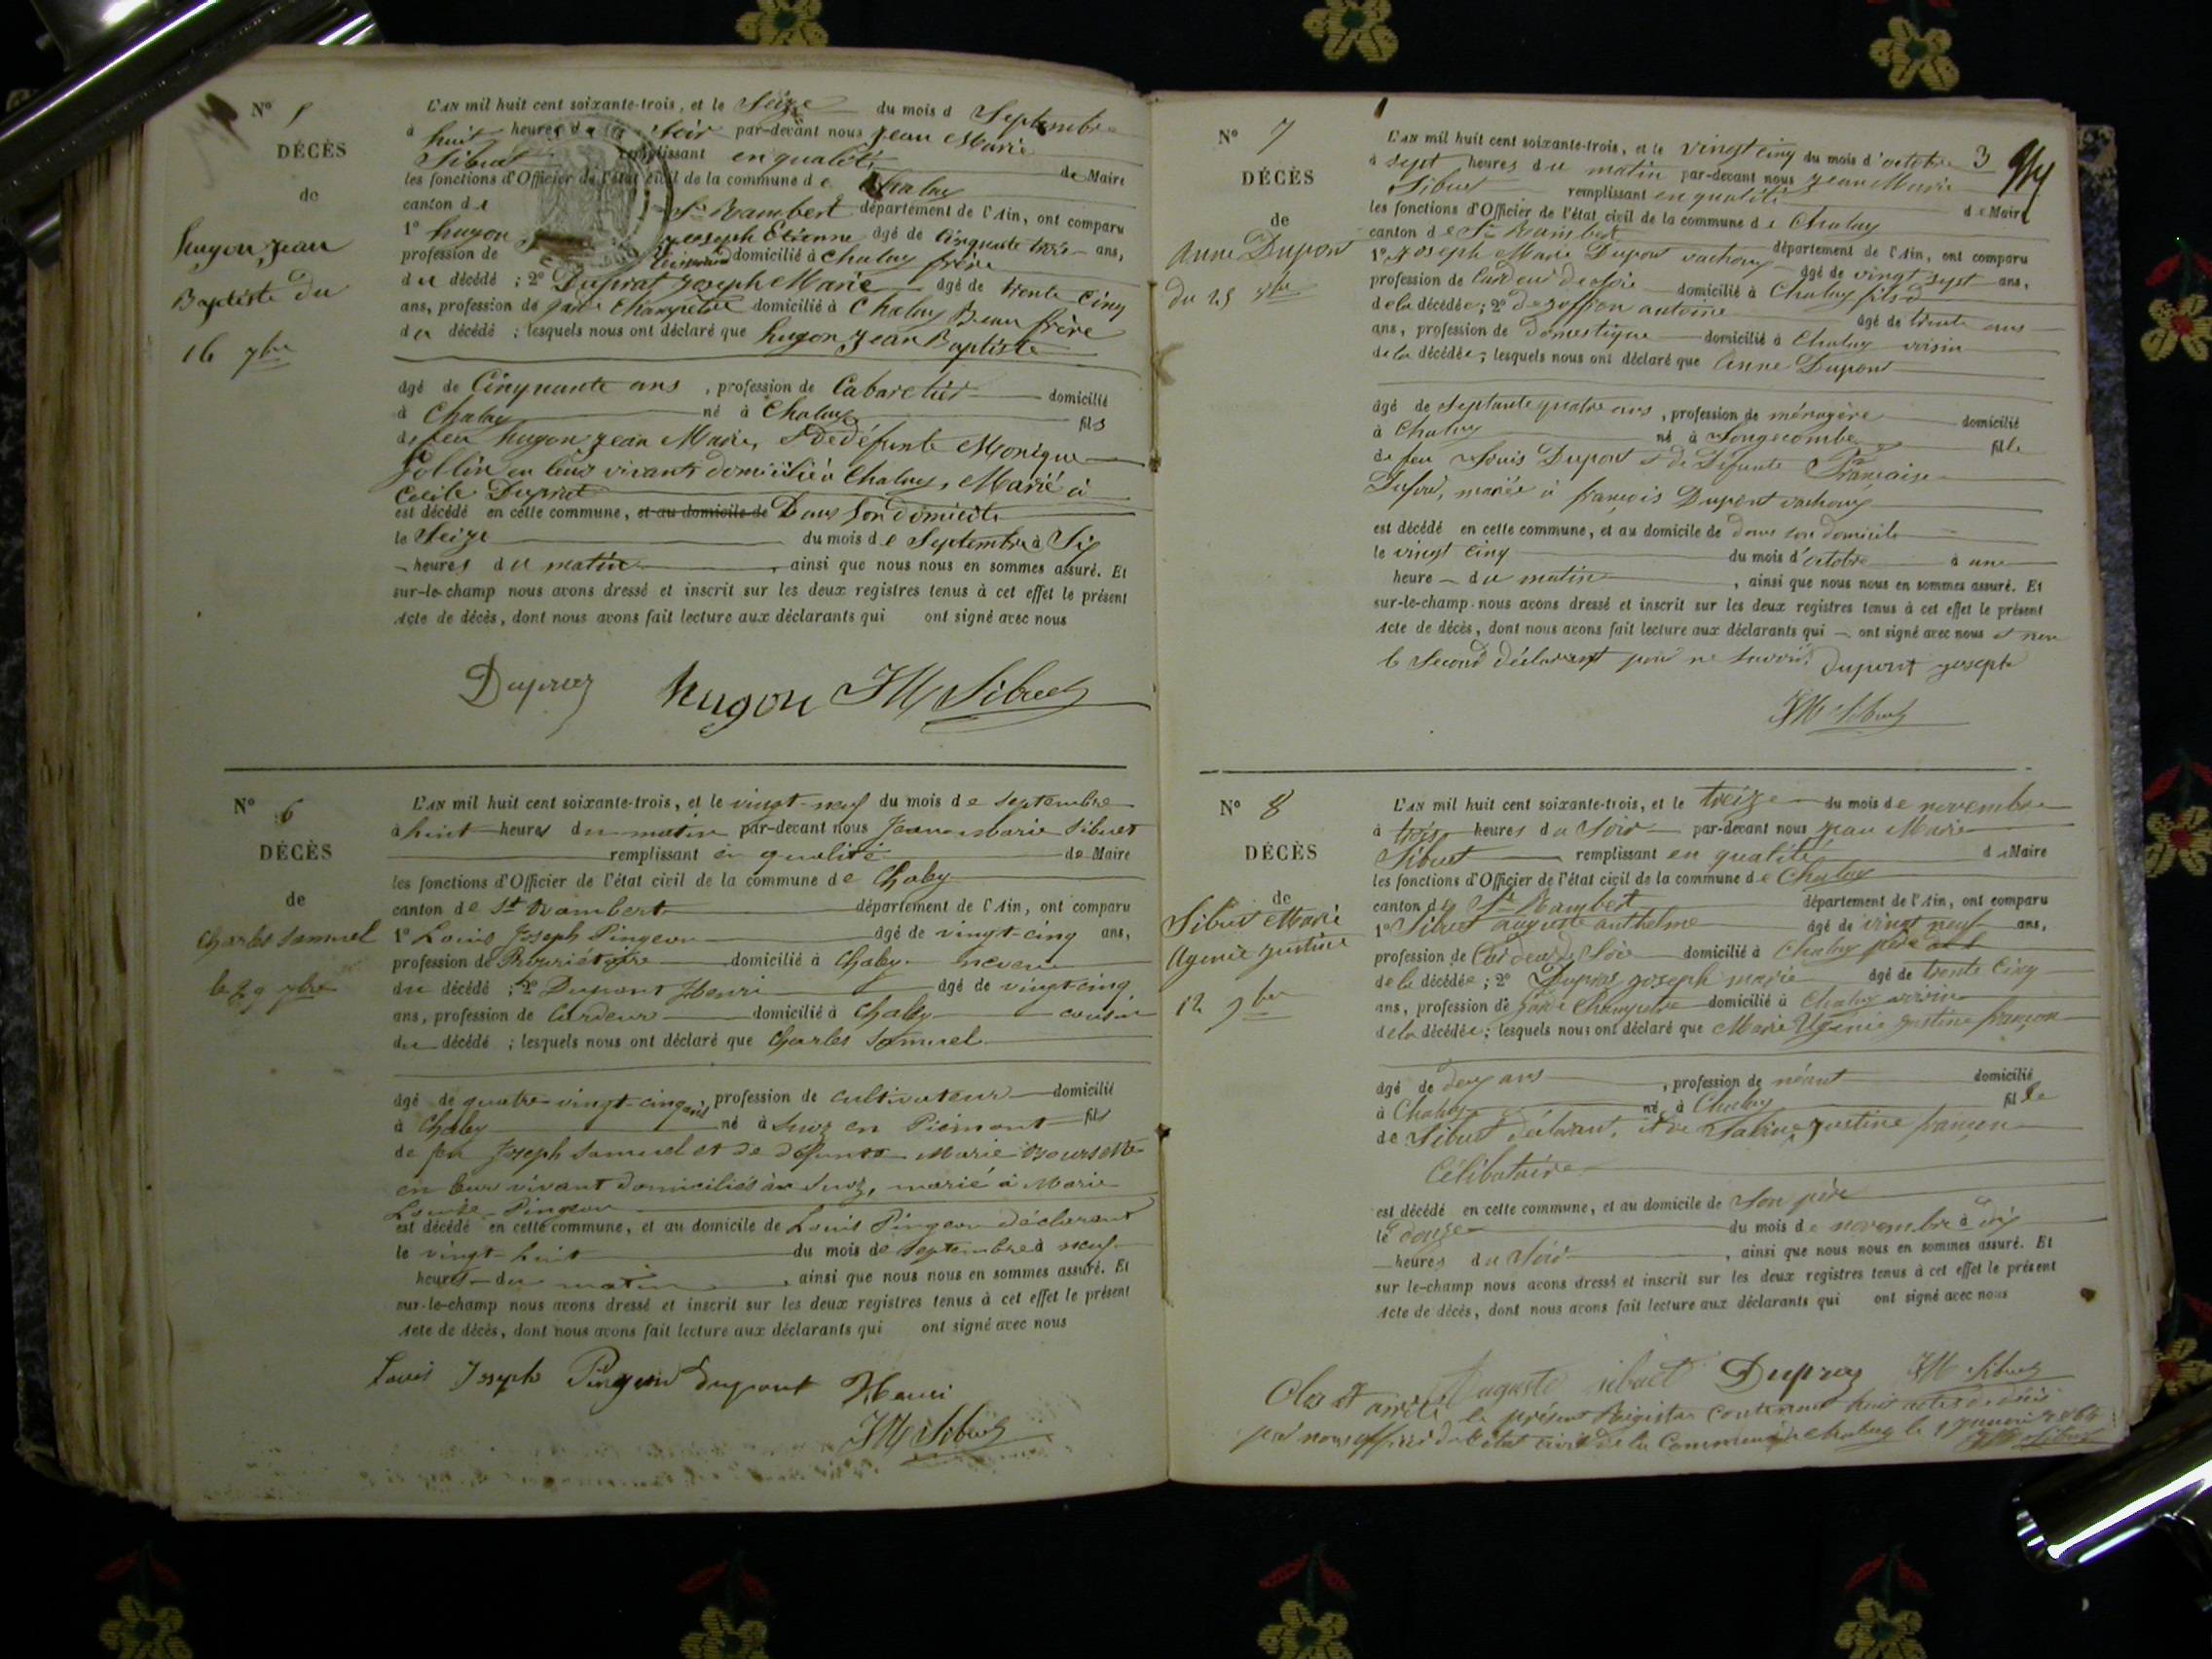 N° 5
DÉCÈS
de
hugon jean
Baptiste du
16 7bre
L'AN mil huit cent soixante-trois, et le Seize du mois d Septembre
à huit heures du Soir par-devant nous jean Marie
Sibuet remplissant en qualité de Maire
les fonctions d'Officier de l'état civil de la commune de Chaley
canton de St Rambert département de l'Ain, ont comparu
1° hugon joseph Etienne âgé de Cinquante trois ans,
profession de domicilié à Chaley frère
du décédé ; 2° Duprat joseph Marie âgé de trente Cinq
ans, profession de garde Champetre domicilié à Chaley Beau frère
du décédé ; lesquels nous ont déclaré que hugon jean Baptiste
âgé de Cinquante ans , profession de Cabaretier domicilié
à Chaley né à Chaley fils
de feu hugon jean Marie, & De défunte Monique
en leurs vivants domicilié à Chaley, Marié à
Cécile Duprat
est décédé en cette commune, et au domicile de Dans Son domicile
le Seize du mois de Septembre à Six
heures du matin , ainsi que nous nous en sommes assuré. Et
sur-le-champ nous avons dressé et inscrit sur les deux registres tenus à cet effet le présent
Acte de décès, dont nous avons fait lecture aux déclarants qui ont signé avec nous
Dupraz hugon JM Sibuet
N° 6
DÉCÈS
de
Charles Samuel
le 29 7bre
L'AN mil huit cent soixante-trois, et le vingt-neuf du mois de Septembre
à huit heures du matin par-devant nous Jean marie Sibuet
remplissant en qualité de Maire
les fonctions d'Officier de l'état civil de la commune de Chaley
canton de St Rambert département de l'Ain, ont comparu
1° Louis Joseph Pingeon âgé de vingt-cinq ans,
profession de Propriétaire domicilié à Chaley neveu
du décédé ; 2° Dupont Henri âgé de vingt-cinq
ans, profession de Cardeur domicilié à Chaley cousin
du décédé ; lesquels nous ont déclaré que Charles Samuel
âgé de quatre-vingt-cinq ans, profession de cultivateur domicilié
à Chaley né à Suoz en Piémont fils
de feu Joseph Samuel et de défunte Marie
en leur vivant domiciliés à Suoz, marié à Marie
Louise Pingeon
est décédé en cette commune, et au domicile de Louis Pingeon déclarant
le vingt-huit du mois de Septembre à neuf
heures du matin , ainsi que nous nous en sommes assuré. Et
sur-le-champ nous avons dressé et inscrit sur les deux registres tenus à cet effet le présent
Acte de décès, dont nous avons fait lecture aux déclarants qui ont signé avec nous
Louis Joseph Pingeon Dupont Henri
JM Sibuet
3
N° 7
DÉCÈS
de
Anne Dupont
du 25
L'AN mil huit cent soixante-trois, et le vingt cinq du mois d'octobre
à sept heures du matin par-devant nous jean Marie
Sibuet remplissant en qualité de Maire
les fonctions d'Officier de l'état civil de la commune de Chaley
canton de St Rambert département de l'Ain, ont comparu
1° joseph Marie Dupont vachoux âgé de vingt sept ans,
profession de Cardeur de soie domicilié à Chaley fils d
de la décédée ; 2° antoine âgé de trente ans
ans, profession de domestique domicilié à Chaley voisin
de la décédée ; lesquels nous ont déclaré que Anne Dupont
âgé de septante quatre ans , profession de ménagère domicilié
à Chaley né à Longecombe fille
de feu Louis Dupont & de Défunte Française
mariée à françois Dupont vachoux
est décédé en cette commune, et au domicile de dans son domicile
le vingt cinq du mois d'octobre à une
heure du matin , ainsi que nous nous en sommes assuré. Et
sur-le-champ nous avons dressé et inscrit sur les deux registres tenus à cet effet le présent
Acte de décès, dont nous avons fait lecture aux déclarants qui ont signé avec nous & non
le second déclarant pour ne savoir dupont joseph
JM Sibuet
N° 8
DÉCÈS
de
Sibuet Marie
Ugenie justine
12 9bre
L'AN mil huit cent soixante-trois, et le treize du mois de novembre
à trois heures du Soir par-devant nous jean Marie
Sibuet remplissant en qualité de Maire
les fonctions d'Officier de l'état civil de la commune de Chaley
canton de St Rambert département de l'Ain, ont comparu
1° Sibuet auguste anthelme âgé de vingt neuf ans,
profession de Cardeur de Soie domicilié à Chaley père
de la décédée ; 2° Dupraz joseph marie âgé de trente Cinq
ans, profession de garde Champetre domicilié à Chaley voisin
de la décédée ; lesquels nous ont déclaré que Marie Ugenie justine françon
âgé de deux ans , profession de néant domicilié
à Chaley né à Chaley fille
de Sibuet déclarant, et de Sabine justine françon
Célibataire
est décédé en cette commune, et au domicile de Son père
le douze du mois de novembre à dix
heures du Soir , ainsi que nous nous en sommes assuré. Et
sur le-champ nous avons dressé et inscrit sur les deux registres tenus à cet effet le présent
Acte de décès, dont nous avons fait lecture aux déclarants qui ont signé avec nous
Auguste sibuet Dupraz JM Sibuet
Clos et arrêté le présent Registre contenant huit actes de décès
par nous officier de l'état civil de la Commune de Chaley le 1 janvier 1864
JM Sibuet